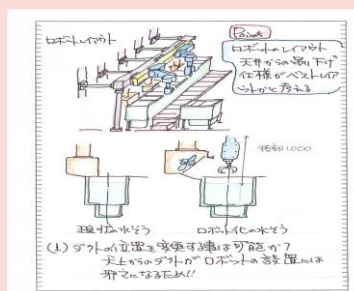 ロボットレイアウト
Point
ロボットのレイアウト
天井からの吊り下げ
仕様がベストレイア
ウトかと考える
1000
現状の水そう
ロボット化の水そう
ダクトの位置を変更する事は可能か?
天上からのダクトがロボットの設置には
邪マになるため!!